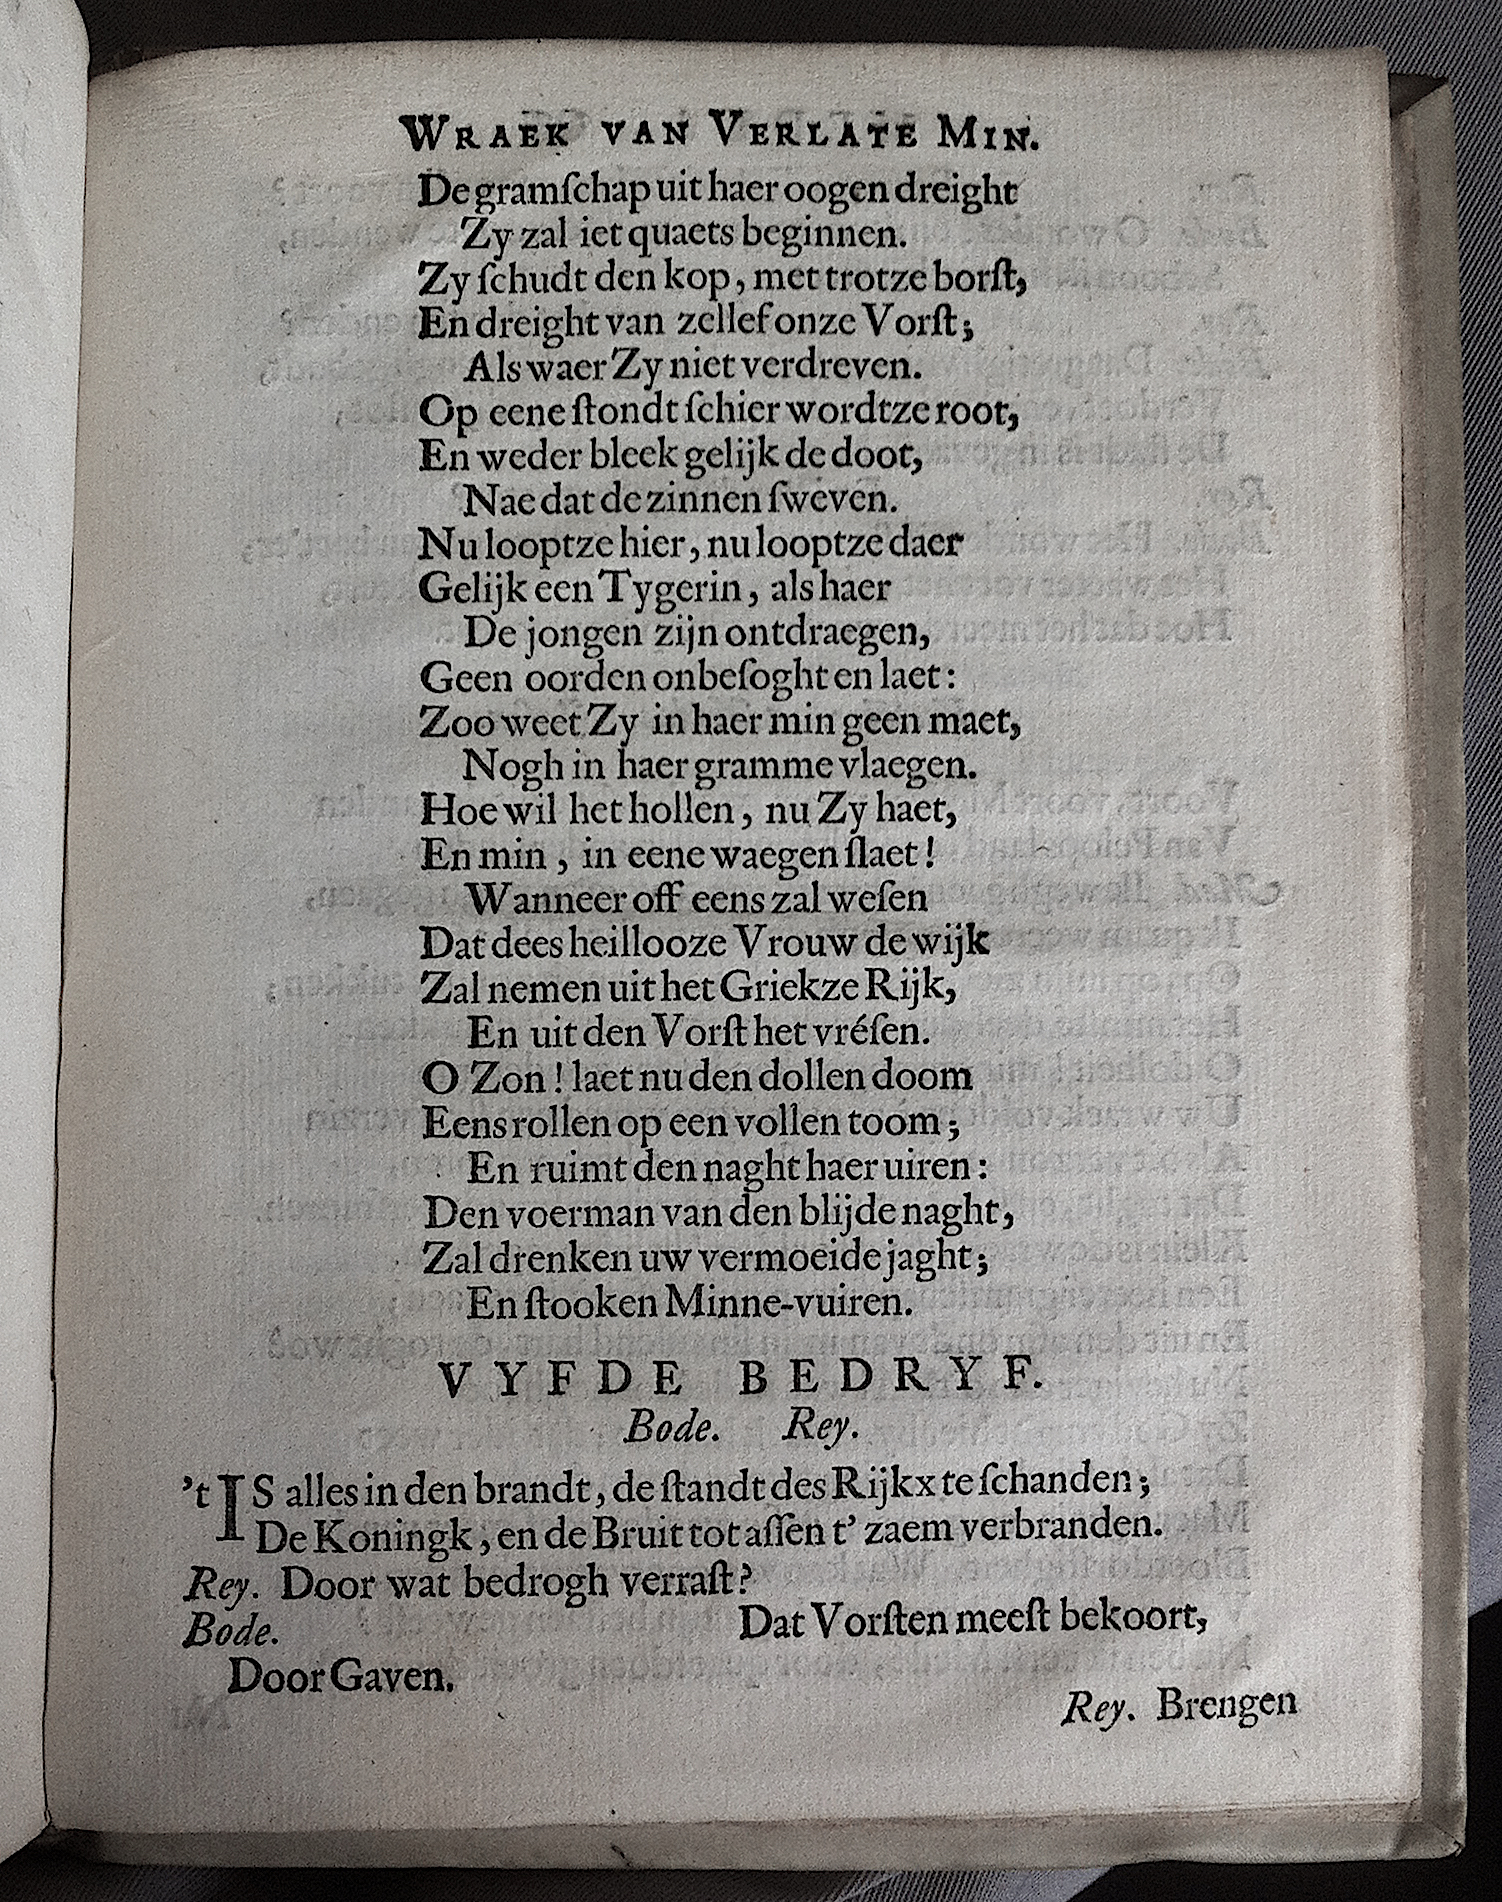 WRAEK VAN VERLATE MIN.
De gramſchap uit haer oogen dreight
Zy zal iet quaets beginnen.
Zy ſchudt den kop, met trotze borſt,
En dreight van zellef onze Vorſt;
Als waer Zy niet verdreven.
Op eene ſtondt ſchier wordtze root,
En weder bleek gelijk de doot,
Nae dat de zinnen ſweven.
Nu looptze hier, nu looptze daer
Gelijk een Tygerin, als haer
De jongen zijn ontdraegen,
Geen oorden onbeſoght en laet:
Zoo weet Zy in haer min geen maet,
Nogh in haer gramme vlaegen.
Hoe wil het hollen, nu Zy haet,
En min, in eene waegen ſlaet!
Wanneer off eens zal weſen
Dat dees heillooze Vrouw de wijk
Zal nemen uit het Griekze Rijk,
En uit den Vorſt het vréſen.
O Zon! laet nu den dollen doom
Eens rollen op een vollen toom;
En ruimt den naght haer uiren:
Den voerman van den blijde naght,
Zal drenken uw vermoeide jaght;
En ſtooken Minne-vuiren.
VYFDE BEDRYF.
Bode. Rey.
't IS alles in den brandt, de ſtandt des Rijkx te ſchanden;
De Koningk, en de Bruit tot aſſen t' zaem verbranden.
Rey. Door wat bedrogh verraſt?
Bode. Dat Vorſten meeſt bekoort,
Door Gaven.
Rey. Brengen